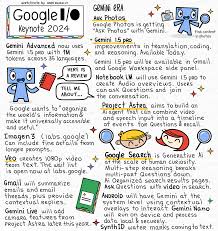 Google I/O
Keynote 2024
Gemini Advanced now uses
1.5 Gemini pro with 1M
tokens across 35 languages.
THIS IS
A REVIEW
TELL ME
ABOUT IT.
Google wants to organize
the world's information &
make it universally accessible
and useful.
Imagen3 (labs google)
Can include fine details
from longer prompts.
Veo creates 1080p video
from text. The wait list
is open now at labs.google.
Gmail will summarize
emails and email
threads, plus provide
contextual replies.
Gemini Live will add
camera features from
Project Astra later this year.
GEMINI ERA
Ask Photos
Google Photos is getting
"Ask Photos" with Gemini.
Gemini 1.5 pro
improvements in translation, coding,
and reasoning. Available today.
Gemini 1.5 will be available in Gmail
and Google Workspace side panel.
Notebook LM will use Gemini 1.5 pro to
create Audio overviews. Users
can ask Questions and join
the conversation.
Project Astra, aims to build an
AI agent that can combine video
and speech input into a timeline
of events for Questions & Recall.
Google Search is Generative AI
at the scale of human curiosity.
Ask Questions with video in search.
Android will have Gemini at the
system level using contextual
overlays to interact. Gemini Nano
will run on device and process
data local & securely.
SynthID water marks coming to text.